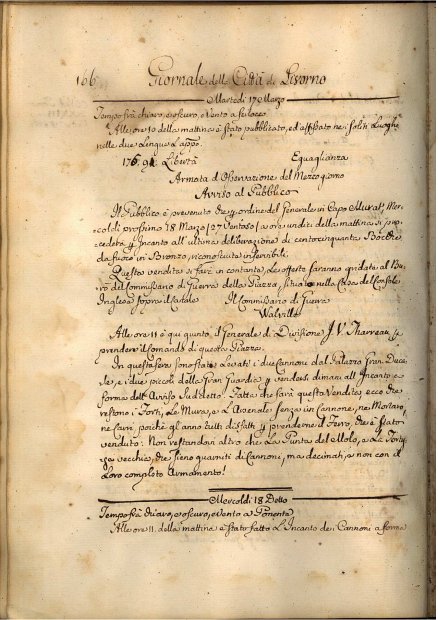 166 Giornale della Città di Livorno
Martedì 17 Marzo
Tempo frà chiaro, e oscuro, e Vento a Scilocco
Alle ore 10 della mattina è stato pubblicato, ed affissato nei soliti Luoghi
nelle due Lingue L'appo.
Libertà Eguaglianza
Armata d'Osservazione del Mezzogiorno
Avviso al Pubblico
Il Pubblico è prevenuto che p ordine del Generale in Capo Murat, Mer-
coldì prossimo 18 Marzo [27 Ventoso] a ore undici della mattina si pro-
cederà p Incanto all'ultima deliberazione di centocinquanta Bocche
da fuoco in Bronzo, riconosciute inservibili.
Questa vendita si farà in contanti, Le offerte saranno gridate al Bu-
rò del Commissario di Guerra della Piazza, situato nella Casa del Console
Inglese sopra il Casale Il Commissario di Guerra
Walville
Alle ore 11 è qui giunto, il Generale di Divisione J. V. Tharreau p
prendere il Comando di questa Piazza.
In questa sera sono stati levati i due Cannoni dal Palazzo Gran Duca-
le, e i due piccoli della Gran Guardia p vendersi dimani all'Incanto a
forma dell'Avviso suddetto. Fatta che sarà questa Vendita, ecco che
restono i Forti, Le Mura, e L'Arsenale senza un Cannone, ne Mortaro,
ne Carri, poichè gl'anno tutti disfatti p prenderne il Ferro, che è stato
venduto: Non restandovi altro che La Punta del Molo, e La Fortez-
za vecchia, che sieno guarniti di Cannoni, ma decimati, e non con il
Loro completo Armamento!
Mercoldì 18 Detto
Tempo frà chiaro, e oscuro, e Vento a Ponente
Alle ore 11. della mattina è stato fatto L'Incanto dei Cannoni a forma